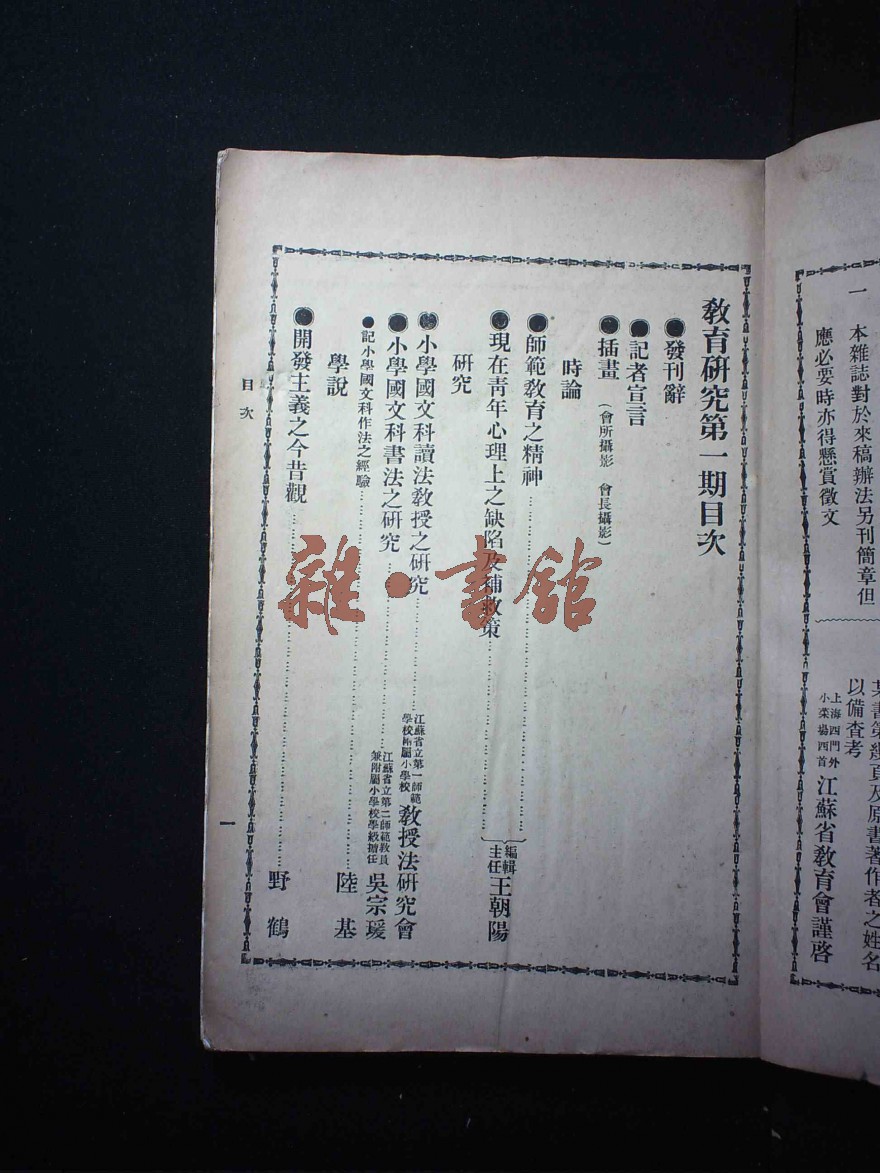 一　本雜誌對於來稿辦法另刊簡章但
應必要時亦得懸賞徵文
以備查考
上海西門外
小菜場西首
江蘇省教育會謹啓
教育研究第一期目次
●發刊辭
●記者宣言
●插畫（會所攝影　會長攝影）
時論
●師範教育之精神
●現在靑年心理上之缺陷及補救策
編輯
主任
王朝陽
研究
●小學國文科讀法教授之研究
江蘇省立第一師範
學校附屬小學校
教授法研究會
●小學國文科書法之研究
江蘇省立第二師範教員
兼附屬小學校學級擔任
吳宗瑗
●記小學國文科作法之經驗
陸基
學說
●開發主義之今昔觀
野鶴
目次
一
雜·書館